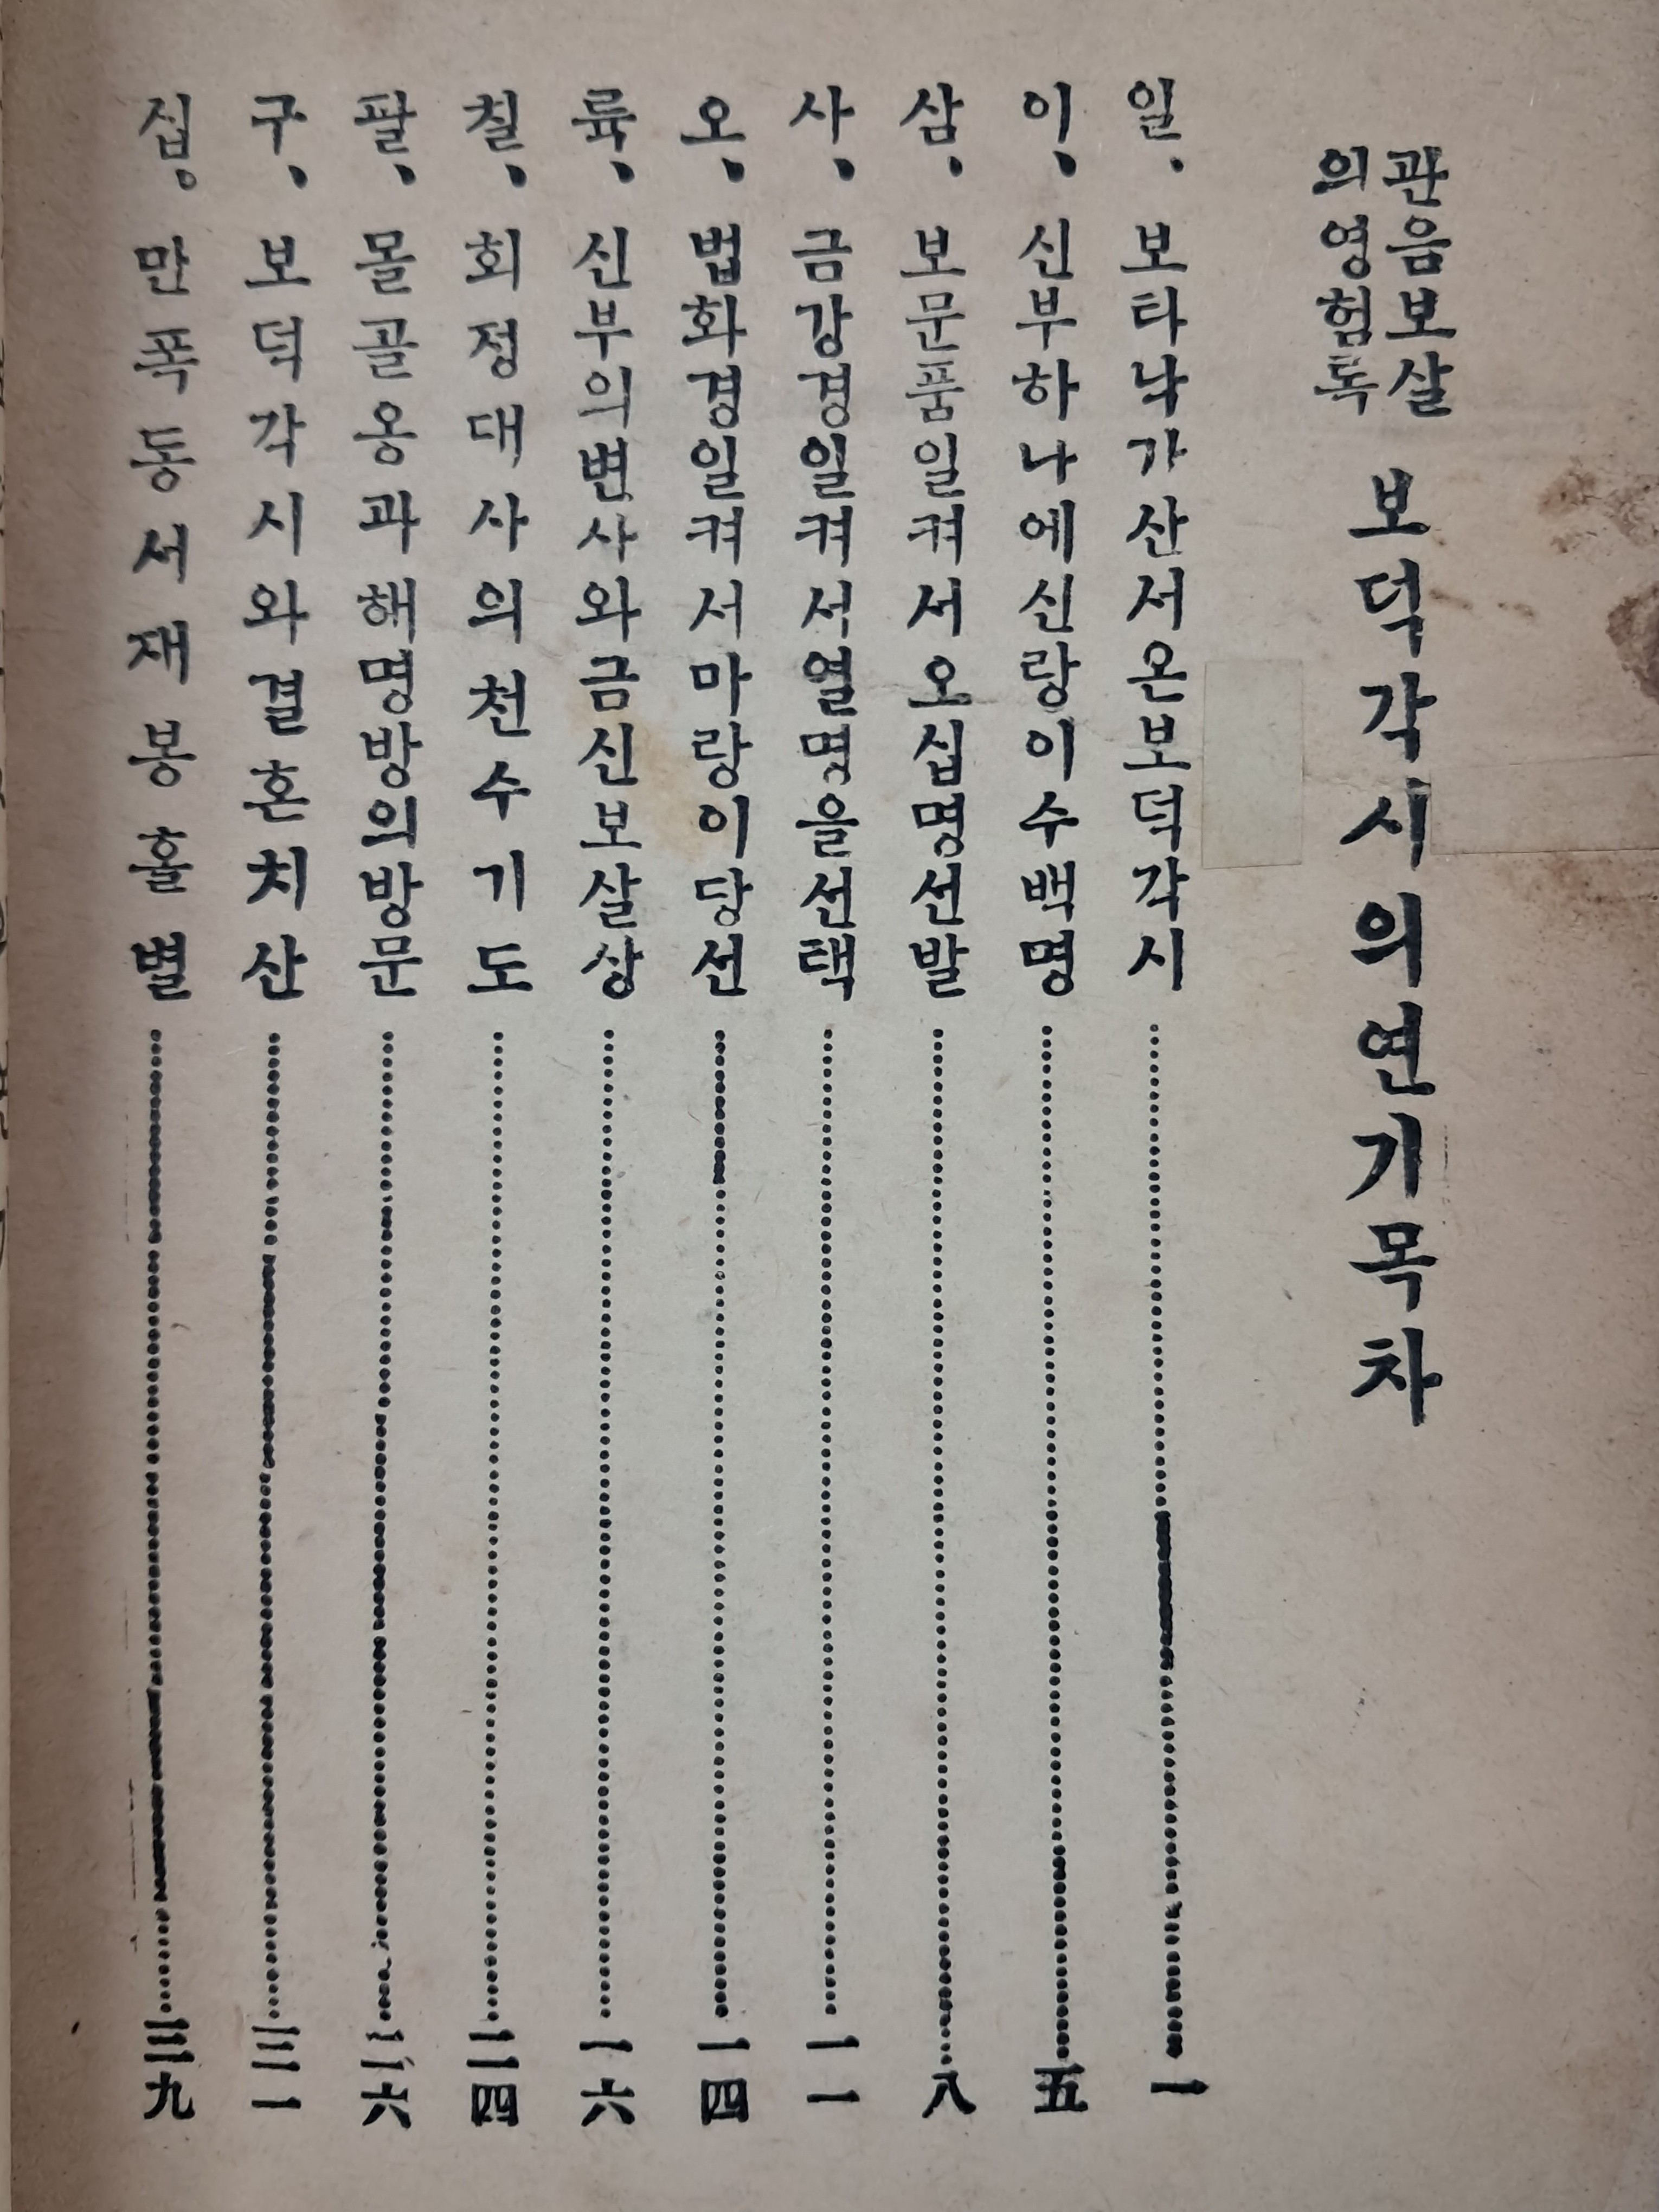 관음보살
의영험록
보덕각시의연기목차
일. 보타낙가산서온보덕각시……一
이、신부하나에신랑이수백명……五
삼. 보문품일켜서오십명선발……八
사、금강경일켜서열명을선택……一一
오、법화경일켜서마랑이당선……一四
륙、신부의변사와금신보살상……一六
칠、회정대사의천수기도……二四
팔、몰골옹과해명방의방문……二六
구、보덕각시와결혼치산……三一
십。만폭동서재봉홀별……三九